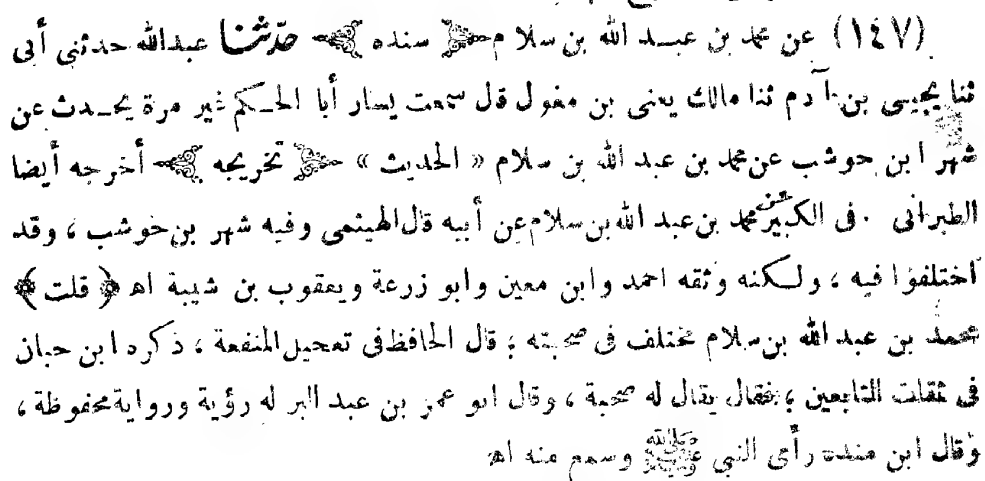 (١٤٧) عن محمد بن عبد الله بن سلام ﴿ سنده ﴾ حدثنا عبدالله حدثنى أبى
ثنا يحيى بن آدم ثنا مالك يعنى بن مغول قال سمعت يسار أبا الحكم غير مرة يحدث عن
شهر ابن حوشب عن محمد بن عبد الله بن سلام « الحديث » ﴿ تخريجه ﴾ أخرجه أيضا
الطبرانى . فى الكبير عن محمد بن عبد الله بن سلام عن أبيه قال الهيثمى وفيه شهر بن حوشب ، وقد
اختلفوا فيه ، ولكنه وثقه احمد وابن معين وابو زرعة ويعقوب بن شيبة اه ﴿ قلت ﴾
محمد بن عبد الله بن سلام مختلف فى صحبته ؛ قال الحافظ فى تعجيل المنفعة ، ذكره ابن حبان
فى ثقات التابعين ؛ فقال يقال له صحبة ، وقال ابو عمر بن عبد البر له رؤية ورواية محفوظة ،
وقال ابن منده رأى النبى ﷺ وسمع منه اه